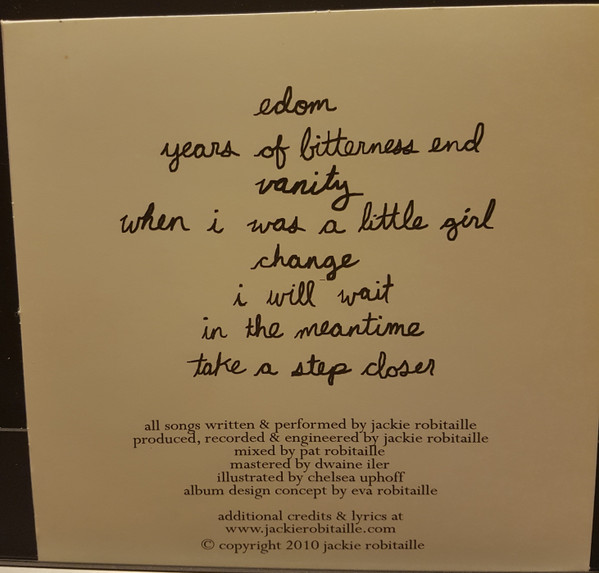 edom
years of bitterness end
vanity
when i was a little girl
change
i will wait
in the meantime
take a step closer
all songs written & performed by jackie robitaille
produced, recorded & engineered by jackie robitaille
mixed by pat robitaille
mastered by dwaine iler
illustrated by chelsea uphoff
album design concept by eva robitaille
additional credits & lyrics at
www.jackierobitaille.com
© copyright 2010 jackie robitaille